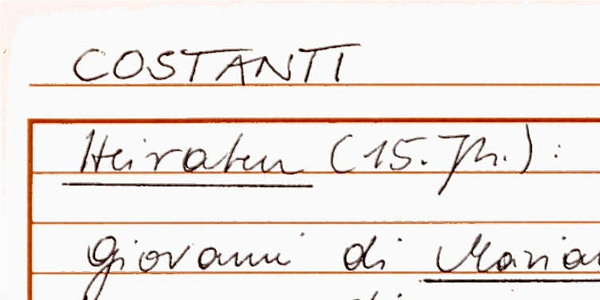 COSTANTI
Heiraten (15. Jh.):
Giovanni di
di